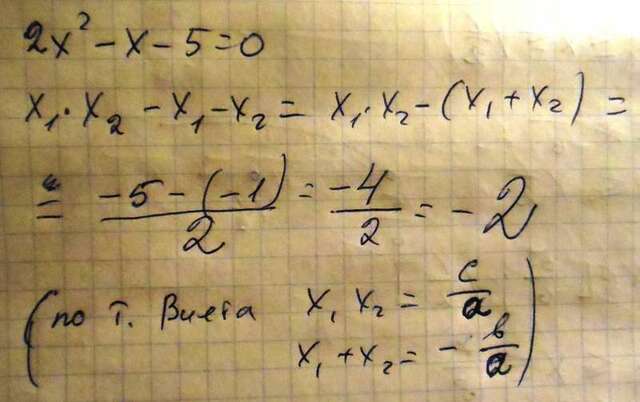 2x² - x - 5 = 0
x₁·x₂ - x₁ - x₂ = x₁·x₂ - (x₁ + x₂) =
= (-5 - (-1))/2 = -4/2 = -2
(по т. Виета x₁ x₂ = c/a
x₁ + x₂ = - в/a)